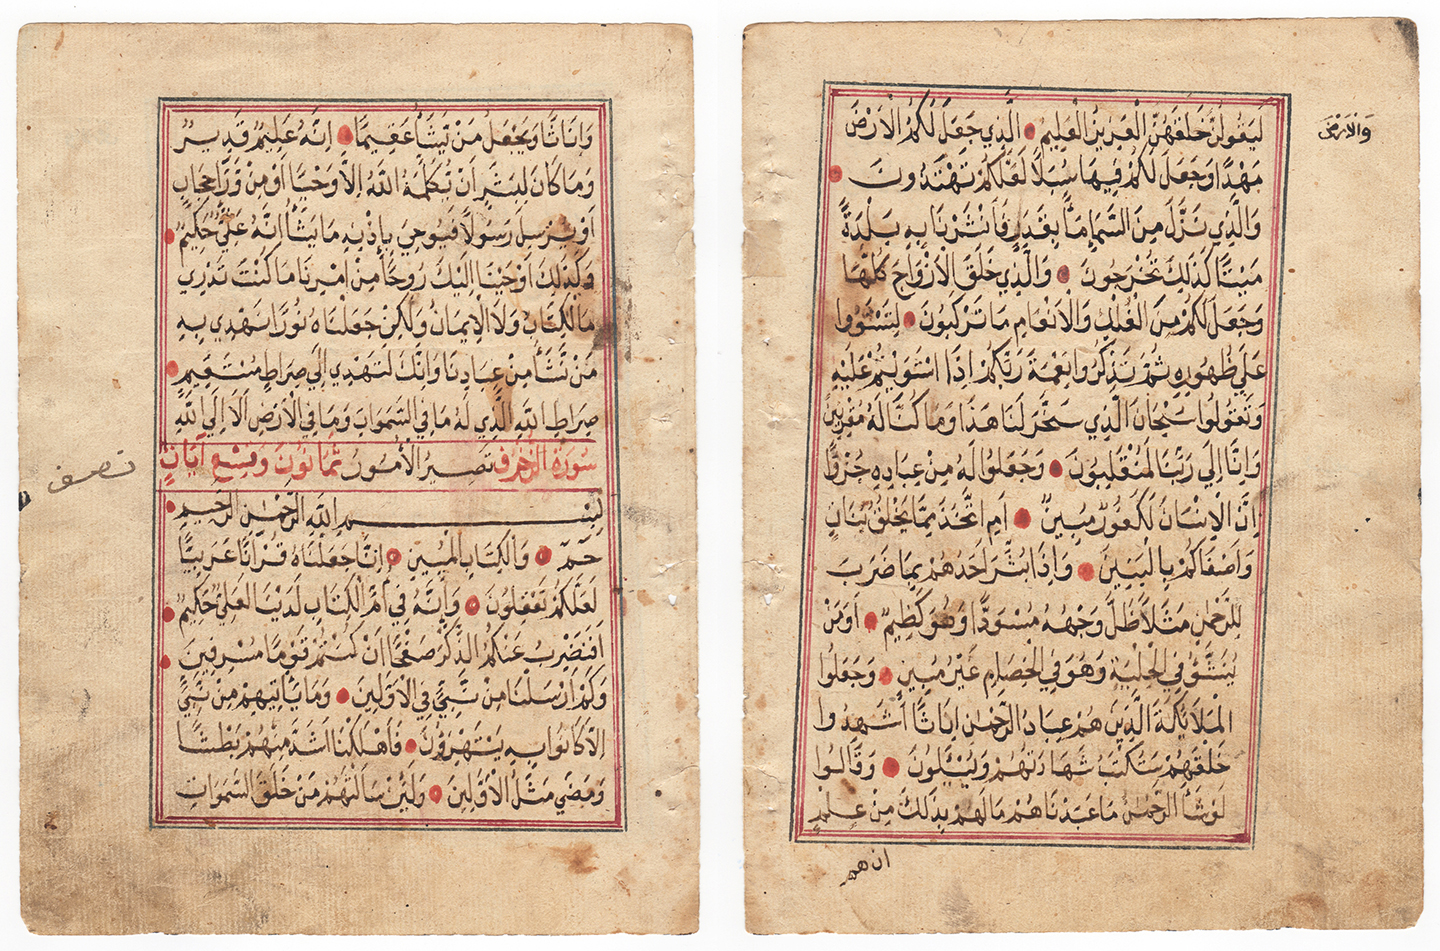 وَاِنَاثًا وَيَجْعَلُ مَنْ يَشَآءُ عَقِيمًا اِنَّهُ عَلِيمٌ قَدِيرٌ
وَمَا كَانَ لِبَشَرٍ اَنْ يُكَلِّمَهُ اللّٰهُ اِلَّا وَحْيًا اَوْ مِنْ وَرَآءِ حِجَابٍ
اَوْ يُرْسِلَ رَسُولًا فَيُوحِيَ بِاِذْنِهِ مَا يَشَآءُ اِنَّهُ عَلِيٌّ حَكِيمٌ
وَكَذٰلِكَ اَوْحَيْنَا اِلَيْكَ رُوحًا مِنْ اَمْرِنَا مَا كُنْتَ تَدْرِي
مَا الْكِتَابُ وَلَا الْاِيمَانُ وَلٰكِنْ جَعَلْنَاهُ نُورًا نَهْدِي بِهِ
مَنْ نَشَآءُ مِنْ عِبَادِنَا وَاِنَّكَ لَتَهْدِي اِلٰى صِرَاطٍ مُسْتَقِيمٍ
صِرَاطِ اللّٰهِ الَّذِي لَهُ مَا فِي السَّمٰوَاتِ وَمَا فِي الْاَرْضِ اَلَا اِلَى اللّٰهِ
تَصِيرُ الْاُمُورُ سُورَةُ الزُّخْرُفِ ثَمَانُونَ وَتِسْعُ آيَاتٍ
نصف
بِسْمِ اللّٰهِ الرَّحْمٰنِ الرَّحِيمِ
حٰمٓ وَالْكِتَابِ الْمُبِينِ اِنَّا جَعَلْنَاهُ قُرْآنًا عَرَبِيًّا
لَعَلَّكُمْ تَعْقِلُونَ وَاِنَّهُ فِي اُمِّ الْكِتَابِ لَدَيْنَا لَعَلِيٌّ حَكِيمٌ
اَفَنَضْرِبُ عَنْكُمُ الذِّكْرَ صَفْحًا اَنْ كُنْتُمْ قَوْمًا مُسْرِفِينَ
وَكَمْ اَرْسَلْنَا مِنْ نَبِيٍّ فِي الْاَوَّلِينَ وَمَا يَأْتِيهِمْ مِنْ نَبِيٍّ
اِلَّا كَانُوا بِهِ يَسْتَهْزِؤُنَ فَاَهْلَكْنَا اَشَدَّ مِنْهُمْ بَطْشًا
وَمَضٰى مَثَلُ الْاَوَّلِينَ وَلَئِنْ سَاَلْتَهُمْ مَنْ خَلَقَ السَّمٰوَاتِ
وَالْاَرْضَ
لَيَقُولُنَّ خَلَقَهُنَّ الْعَزِيزُ الْعَلِيمُ الَّذِي جَعَلَ لَكُمُ الْاَرْضَ
مَهْدًا وَجَعَلَ لَكُمْ فِيهَا سُبُلًا لَعَلَّكُمْ تَهْتَدُونَ
وَالَّذِي نَزَّلَ مِنَ السَّمَآءِ مَآءً بِقَدَرٍ فَاَنْشَرْنَا بِهِ بَلْدَةً
مَيْتًا كَذٰلِكَ تُخْرَجُونَ وَالَّذِي خَلَقَ الْاَزْوَاجَ كُلَّهَا
وَجَعَلَ لَكُمْ مِنَ الْفُلْكِ وَالْاَنْعَامِ مَا تَرْكَبُونَ لِتَسْتَوُوا
عَلٰى ظُهُورِهِ ثُمَّ تَذْكُرُوا نِعْمَةَ رَبِّكُمْ اِذَا اسْتَوَيْتُمْ عَلَيْهِ
وَتَقُولُوا سُبْحَانَ الَّذِي سَخَّرَ لَنَا هٰذَا وَمَا كُنَّا لَهُ مُقْرِنِينَ
وَاِنَّا اِلٰى رَبِّنَا لَمُنْقَلِبُونَ وَجَعَلُوا لَهُ مِنْ عِبَادِهِ جُزْءًا
اِنَّ الْاِنْسَانَ لَكَفُورٌ مُبِينٌ اَمِ اتَّخَذَ مِمَّا يَخْلُقُ بَنَاتٍ
وَاَصْفَاكُمْ بِالْبَنِينَ وَاِذَا بُشِّرَ اَحَدُهُمْ بِمَا ضَرَبَ
لِلرَّحْمٰنِ مَثَلًا ظَلَّ وَجْهُهُ مُسْوَدًّا وَهُوَ كَظِيمٌ اَوَمَنْ
يُنَشَّؤُ فِي الْحِلْيَةِ وَهُوَ فِي الْخِصَامِ غَيْرُ مُبِينٍ وَجَعَلُوا
الْمَلَائِكَةَ الَّذِينَ هُمْ عِبَادُ الرَّحْمٰنِ اِنَاثًا اَشَهِدُوا
خَلْقَهُمْ سَتُكْتَبُ شَهَادَتُهُمْ وَيُسْئَلُونَ وَقَالُوا
لَوْ شَآءَ الرَّحْمٰنُ مَا عَبَدْنَاهُمْ مَا لَهُمْ بِذٰلِكَ مِنْ عِلْمٍ
ان هم